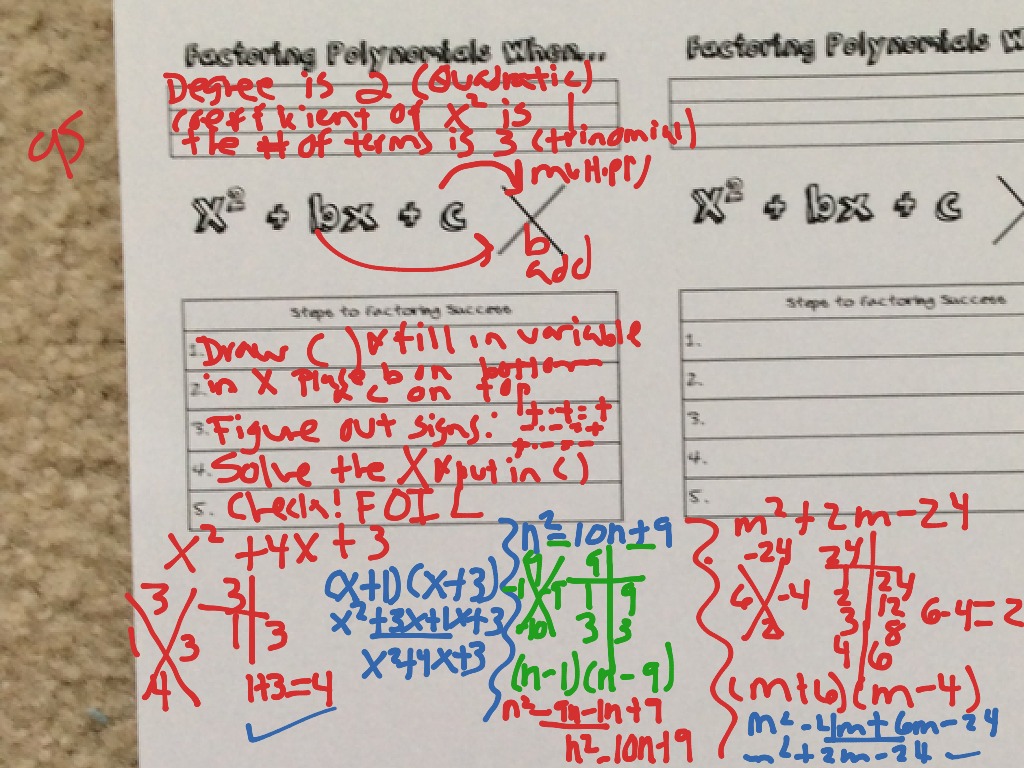 Factoring Polynomials When...
Degree is 2 (Quadratic)
coefficient of x² is 1
the # of terms is 3 (trinomial)
95
multiply
x² + bx + c
b
add
Steps to Factoring Success
1. Draw ( ) & fill in variable
2. in X place b on bottom
c on top
3. Figure out signs:
+·+=+
-·-=+
+·-=-
4. Solve the X & put in ( )
5. Check! FOIL
x² + 4x + 3
3
1 3
4
3
1 3
1+3=4
(x+1)(x+3)
x²+3x+1x+3
x²+4x+3
n²-10n+9
9
-1 -9
-10
9
1 9
3 3
(n-1)(n-9)
n²-9n-1n+9
n²-10n+9
Factoring Polynomials W
x² + bx + c
Steps to Factoring Success
1.
2.
3.
4.
5.
m²+2m-24
-24
6 -4
2
24
1 24
2 12
3 8
4 6
6-4=2
(m+6)(m-4)
m²-4m+6m-24
m²+2m-24